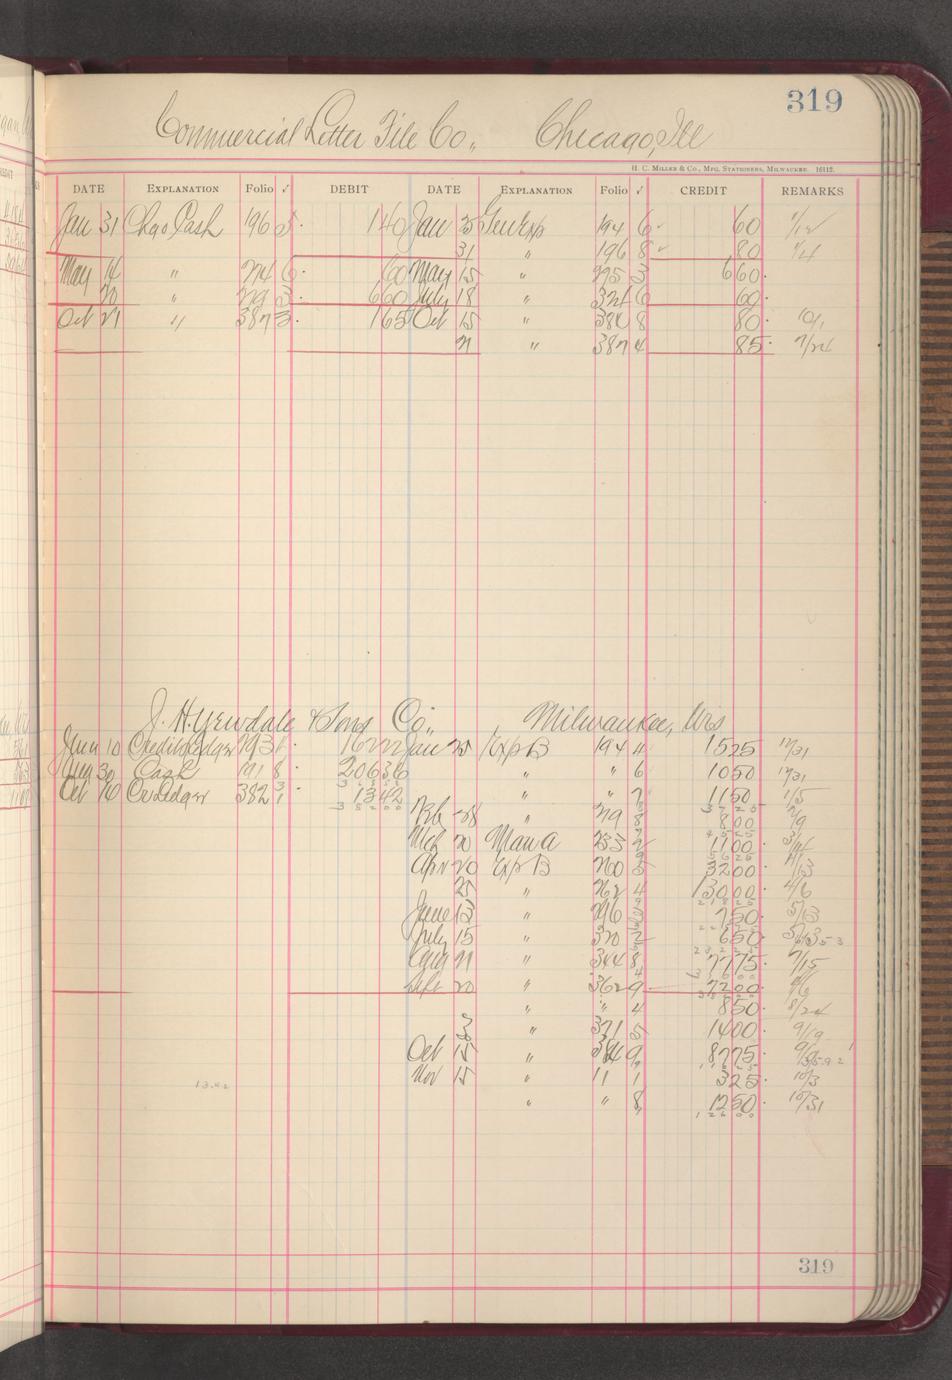 319
Commercial Letter File Co., Chicago, Ill
H. C. Miller & Co., Mfg. Stationers, Milwaukee. 16112.
DATE EXPLANATION Folio ✓ DEBIT DATE EXPLANATION Folio ✓ CREDIT REMARKS
Jan 31 Chgo Cash 196 140 Jan 25 Gen Exp 194 6 60
31 " 196 8 80 1/4
May 14 " 274 6 60 May 15 " 275 3 660
20 " 279 3 660 July 18 " 321 6 60
Oct 21 " 387 3 165 Oct 15 " 380 8 80 10/1
21 " 387 4 85 9/24
J. H. Yewdale & Sons Co., Milwaukee, Wis
10 Credit Ledger 1622 Jan 25 Exp B 194 11 1525 12/31
Aug 30 Cash 20636 " " 6 1050 12/31
Oct 16 Cr Ledger 382 1342 " " 7 1150 1/5
Feb 28 " 219 8 800 2/9
Mch 20 Manu a 233 2 1100
Apr 20 Exp B 260 5 3200
25 " 262 4 13000 4/6
June 13 " 296 750 5/13
July 15 " 320 2 650
Aug 21 " 344 8 7775 7/15
Sept 20 " 362 9 7200
" " 4 850 8/24
" 371 5 1400 9/19
Oct 15 " 9 8775
Nov 15 " 11 1 325 10/3
" " 8 1250 10/31
13.42
319